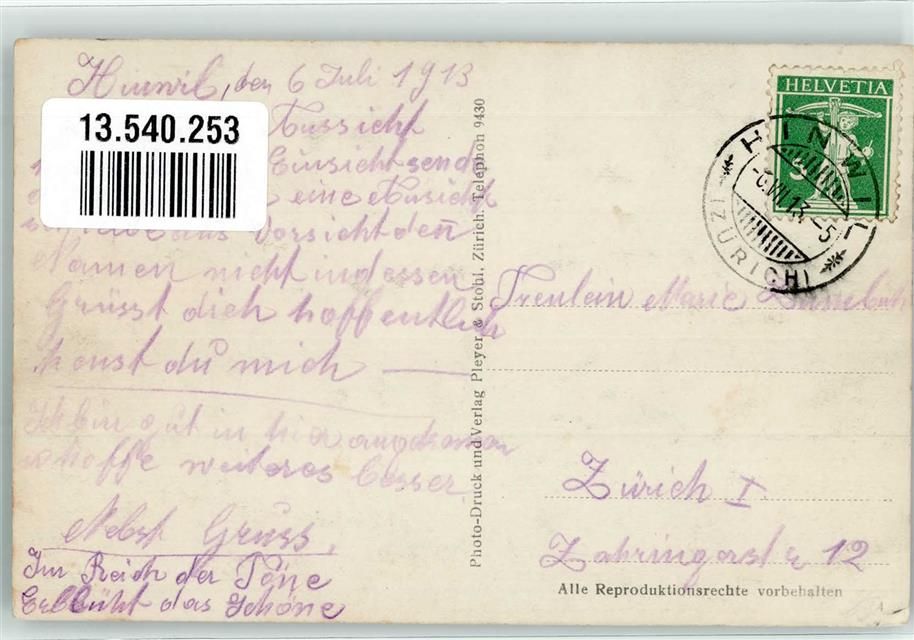 Hinwil, den 6 Juli 1913
13.540.253
Aussicht
Einsicht sende
eine Ansicht
aus Vorsicht den
Namen nicht indessen
Grüsst dich hoffentlich
kenst du mich
Ich bin gut in hier angekommen
hoffe weiteres besser
Nebst Gruss,
Im Reich der Töne
Erblüht das Schöne
Photo-Druck und Verlag Pleyer & Stohl, Zürich. Telephon 9430
HELVETIA
5
HINWIL
-6.VII.13.-5
(ZÜRICH)
Freulein Marie
Zürich I
Zahringerstr 12
Alle Reproduktionsrechte vorbehalten